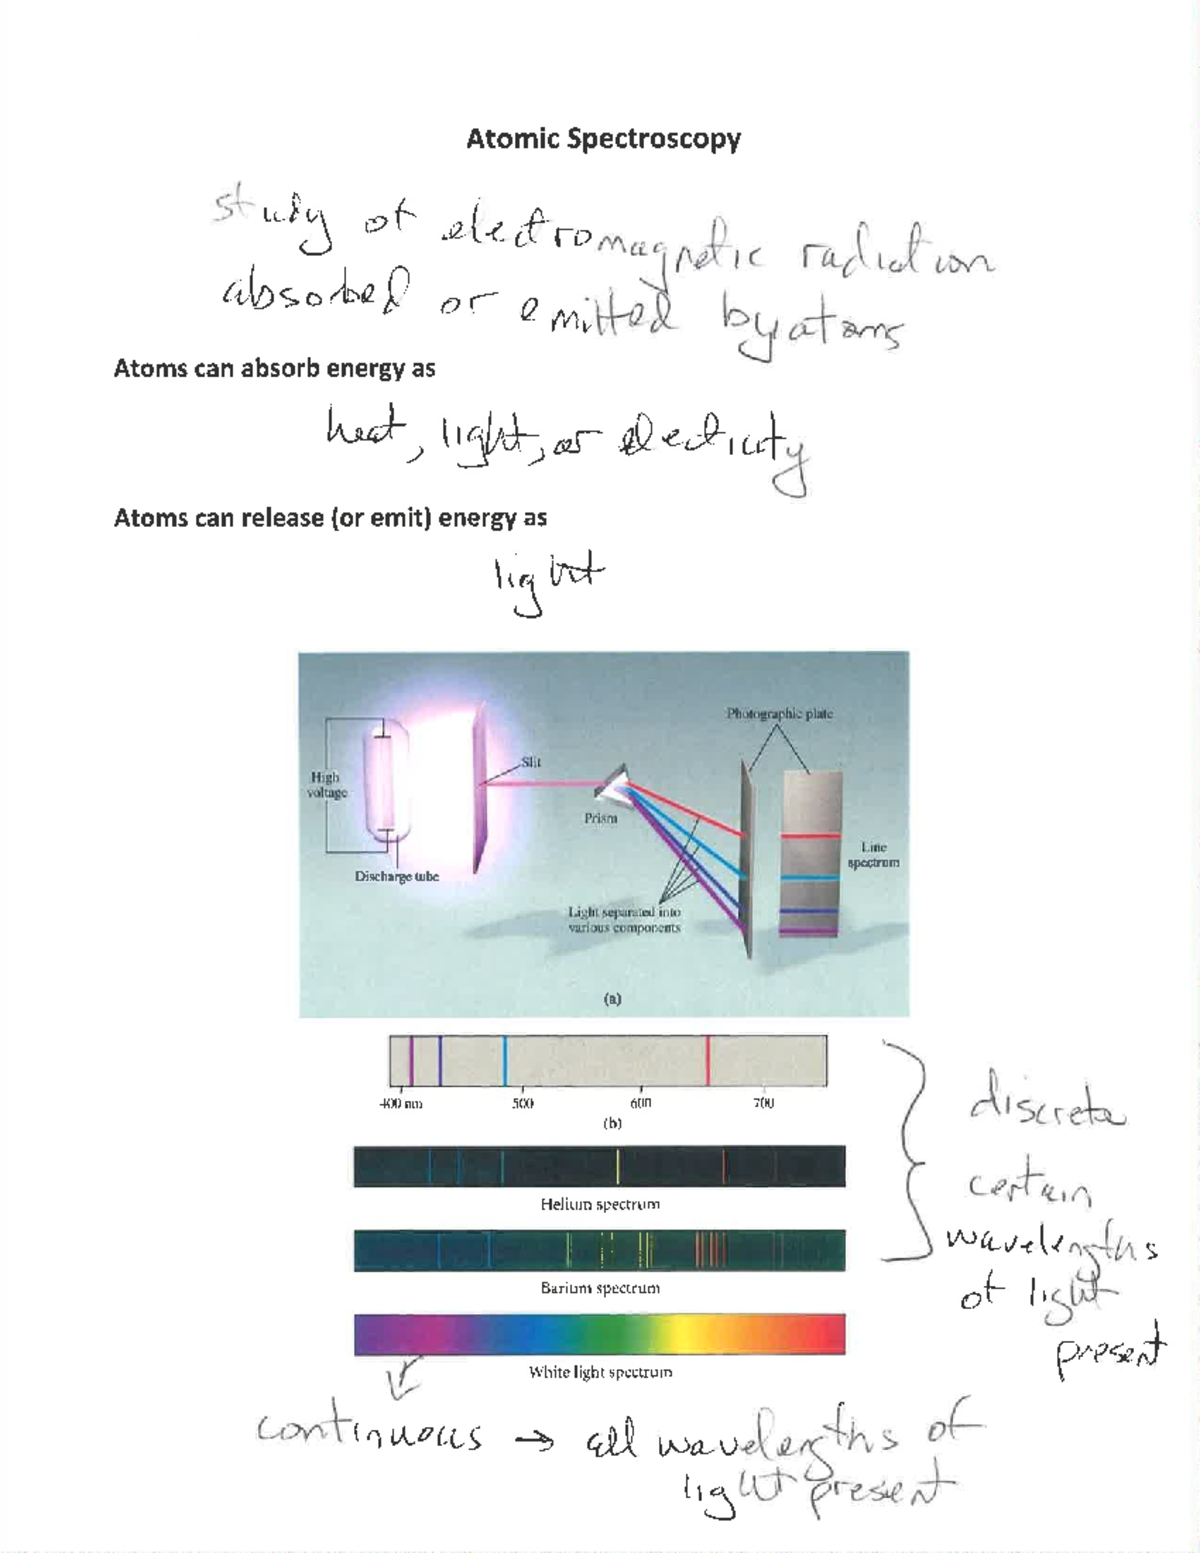 Atomic Spectroscopy
study of electromagnetic radiation
absorbed or emitted by atoms
Atoms can absorb energy as
heat, light, or electicity
Atoms can release (or emit) energy as
light
Photographic plate
Slit
High
voltage
Prism
Line
spectrum
Discharge tube
Light separated into
various components
(a)
400 nm 500 600 700
(b)
Helium spectrum
Barium spectrum
White light spectrum
discrete
certain
wavelengths
of light
present
continuous → all wavelengths of
light present